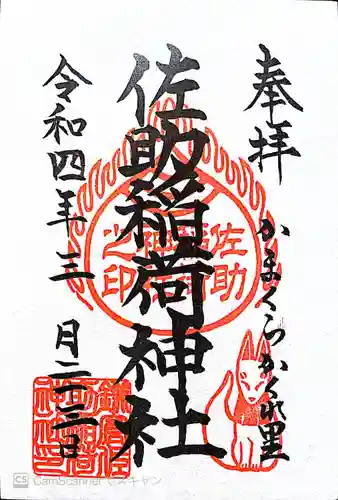 奉拝
かまくらかくれ里
佐助稲荷神社
令和四年三月二十三日
佐助
之印
CS CamScanner でスキャン